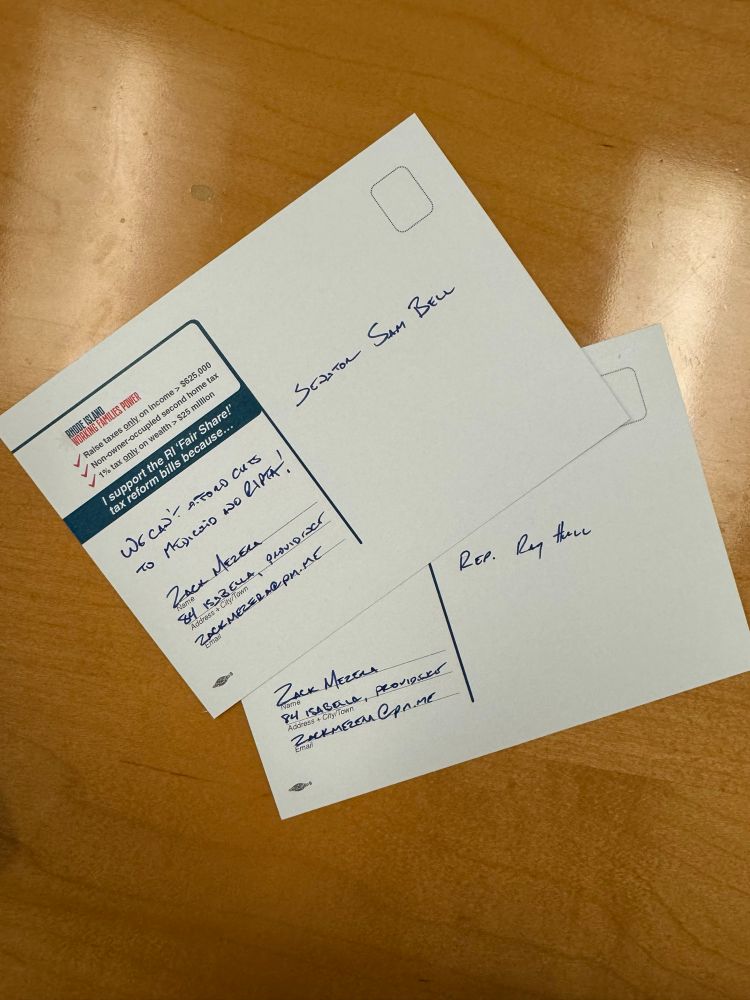 RHODE ISLAND
WORKING FAMILIES POWER
Raise taxes only on income > $625,000
Non-owner-occupied second home tax
1% tax only on wealth > $25 million
I support the RI 'Fair Share!'
tax reform bills because...
WE CAN'T AFFORD CUTS
TO MEDICAID AND RIPTA!
ZACK MEZERA
Name
84 ISABELLA, PROVIDENCE
Address + City/Town
ZACKMEZERA@PM.ME
Email
SENATOR SAM BELL
ZACK MEZERA
Name
84 ISABELLA, PROVIDENCE
Address + City/Town
ZACKMEZERA@PM.ME
Email
REP. Ray Hull